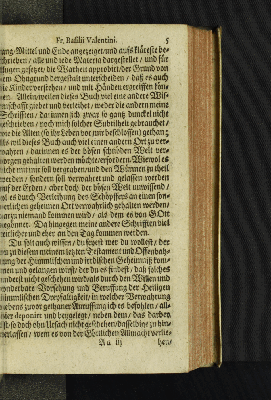 Fr. Basilii Valentini. 5
rung/Mittel und Ende angezeiget/und auffs kläreste be-
schrieben/ alle und jede Materia dargestellet/ und für
Augen gesetzt/ die Warheit approbirt/ der Grund von
dem Ohngrund dargethan unterschieden/ daß es auch
die Kinder verstehen/ und mit Händen ergreiffen kön-
nen. Alldieweilen dieses Buch viel eine andere Wis-
senschafft giebet und verleihet/ weder die andern meine
Schrifften/ darinnen ich zwar so gantz dunckel nicht
geschrieben/ noch mich solcher Subtilheit gebrauchet/
wie die Alten (so ihr Leben vor mir beschlossen) gethan:
Als wil dieses Buch auch viel einen andern Ort zu ver-
wahren/ darinnen es der bösen schnöden Welt ver-
borgen gehalten werden möchte/ erfordern. Wiewol es
nicht mit mir soll vergraben/ und den Würmen zu theil
werden/ sondern soll verwahret und gelassen werden
auf der Erden/ aber doch der bösen Welt unwissend/
soll es durch Verleihung des Schöpffers an einen son-
derlichen geheimen Ort verwahrlich erhalten werden/
da gantz niemand kommen wird/ als dem es von GOtt
gegönnet. Da hingegen meine andere Schrifften viel
zeitlicher und eher an den Tag kommen werden.
Du solt auch wissen/ du seyest wer du wollest/ der
du zu diesem meinem letzten Testament und Offenbah-
rung der Himmlischen und irrdischen Geheimnüß kom-
men und gelangen wirst/ der du es findest/ daß solches
anderst nicht geschehen/ worden als durch den Willen und
wunderbare Vorsehung und Beruffung der Heiligen
Himmlischen Dreyfaltigkeit/ in welcher Verwahrung
ichs eben zuvor gethaner Anruffung ich es befohlen/ all-
hier deponirt und beygeleget/ neben dem/ das darbey
ist/ so doch ohn Ursach nicht geschehen/ dasselbige zu hin-
terlassen/ wem es von der Göttlichen Allmacht verlie-
Aa iij hen/